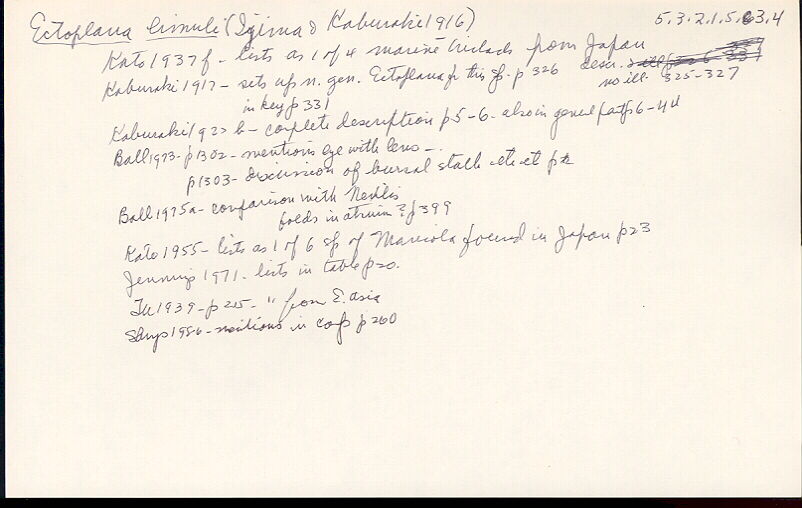 Ectoplana limuli (Ijima & Kaburaki 1916) 5.3.2.1.5.63.4
Kato 1937f - lists as 1 of 4 marine triclads from Japan
Kaburaki 1917 - sets up n. gen. Ectoplana for this sp. p 326 descr. 325-327
no ill.
in key p 331
Kaburaki 1922b - complete description p 5-6 - also in general part p 6-44
Ball 1973 - p 1302 - mentions eye with lens -
p 1303 - discussion of bursal stalk etc
Ball 1975a - comparison with Nexilis
folds in atrium ? p 399
Kato 1955 - lists as 1 of 6 sp of Maricola found in Japan p 23
Jennings 1971 - lists in table p 20.
Tu 1939 - p 205 - " from E. Asia
Sluys 1986 - mentions in comp p 260